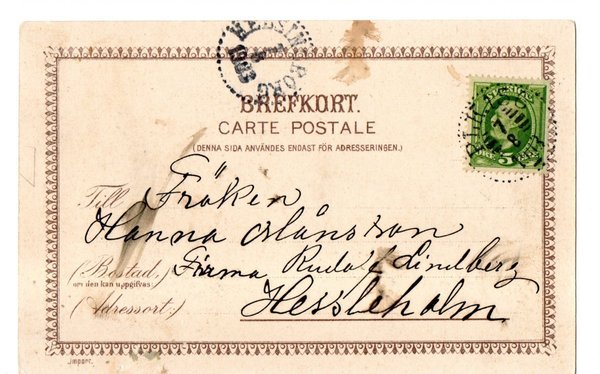 HELSINGBORG
BREFKORT.
CARTE POSTALE
(DENNA SIDA ANVÄNDES ENDAST FÖR ADRESSERINGEN.)
SVERIGE
5
Till Fröken
Hanna Månsson
(Bostad, Firma Rudolf Lindberg
om den kan uppgifvas
(Adressort:) Hessleholm.
Import.